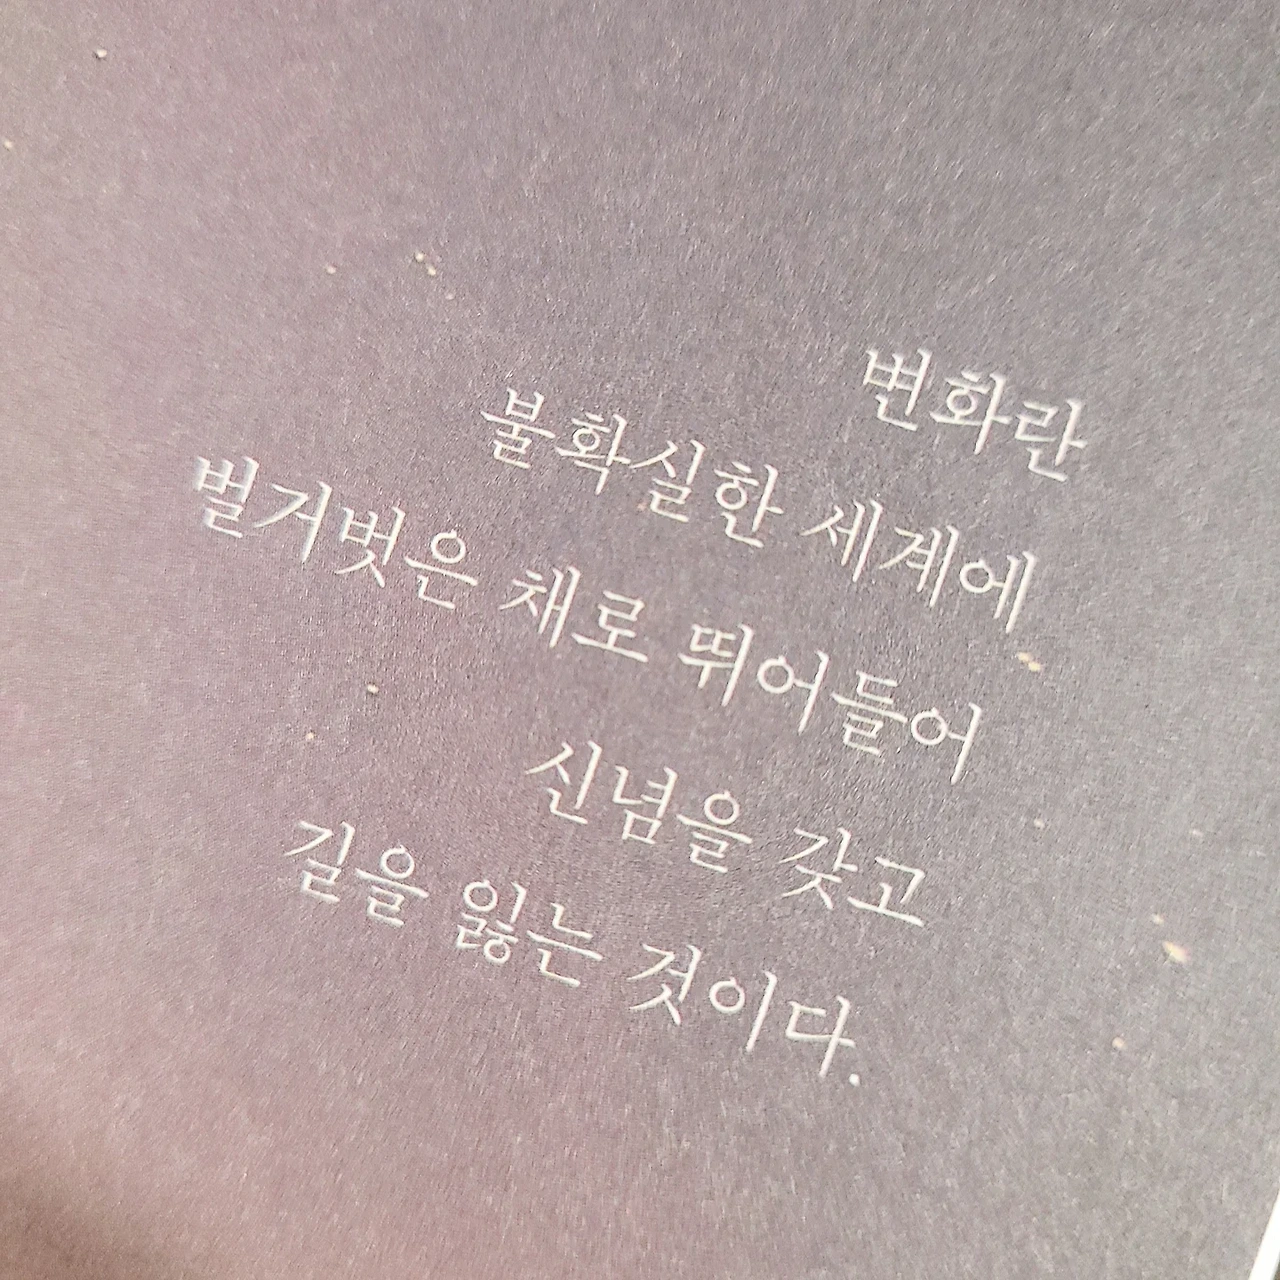 변화란
불확실한 세계에
벌거벗은 채로 뛰어들어
신념을 갖고
길을 잃는 것이다.